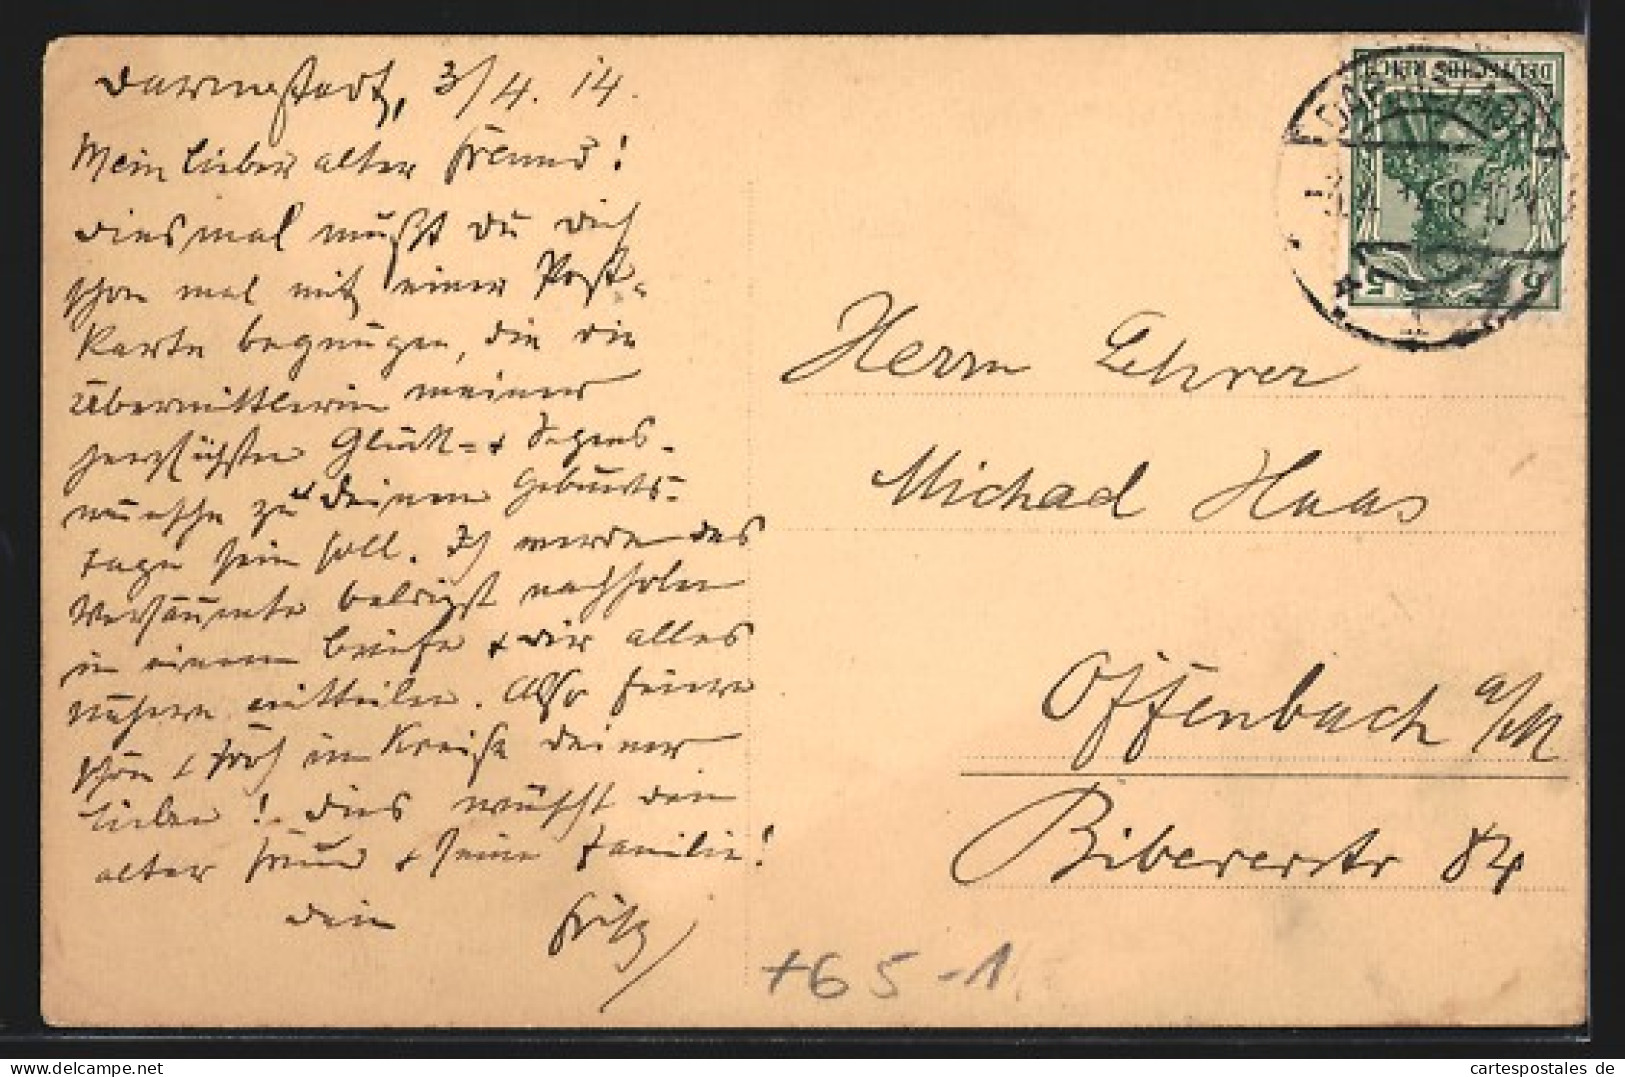 Darmstadt, 3/4. 14.
Mein lieber alter Freund!
diesmal mußt du dich
schon mal mit einer Post-
Karte begnügen, die die
Übermittlerin meiner
herzlichsten Glück- + Segens-
wünsche zu deinem Geburts-
tage sein soll. Ich werde das
Versäumte baldigst nachholen
in einem Briefe + dir alles
nähere mitteilen. Also feiere
schön + froh im Kreise deiner
Lieben! Dies wünscht dein
alter Freund + seine Familie!
dein Fritz
DEUTSCHES REICH
5 5
DARMSTADT
Herrn Lehrer
Michael Haas
Offenbach a/M
Biebererstr 84
+65-1
www.cartespostales.de